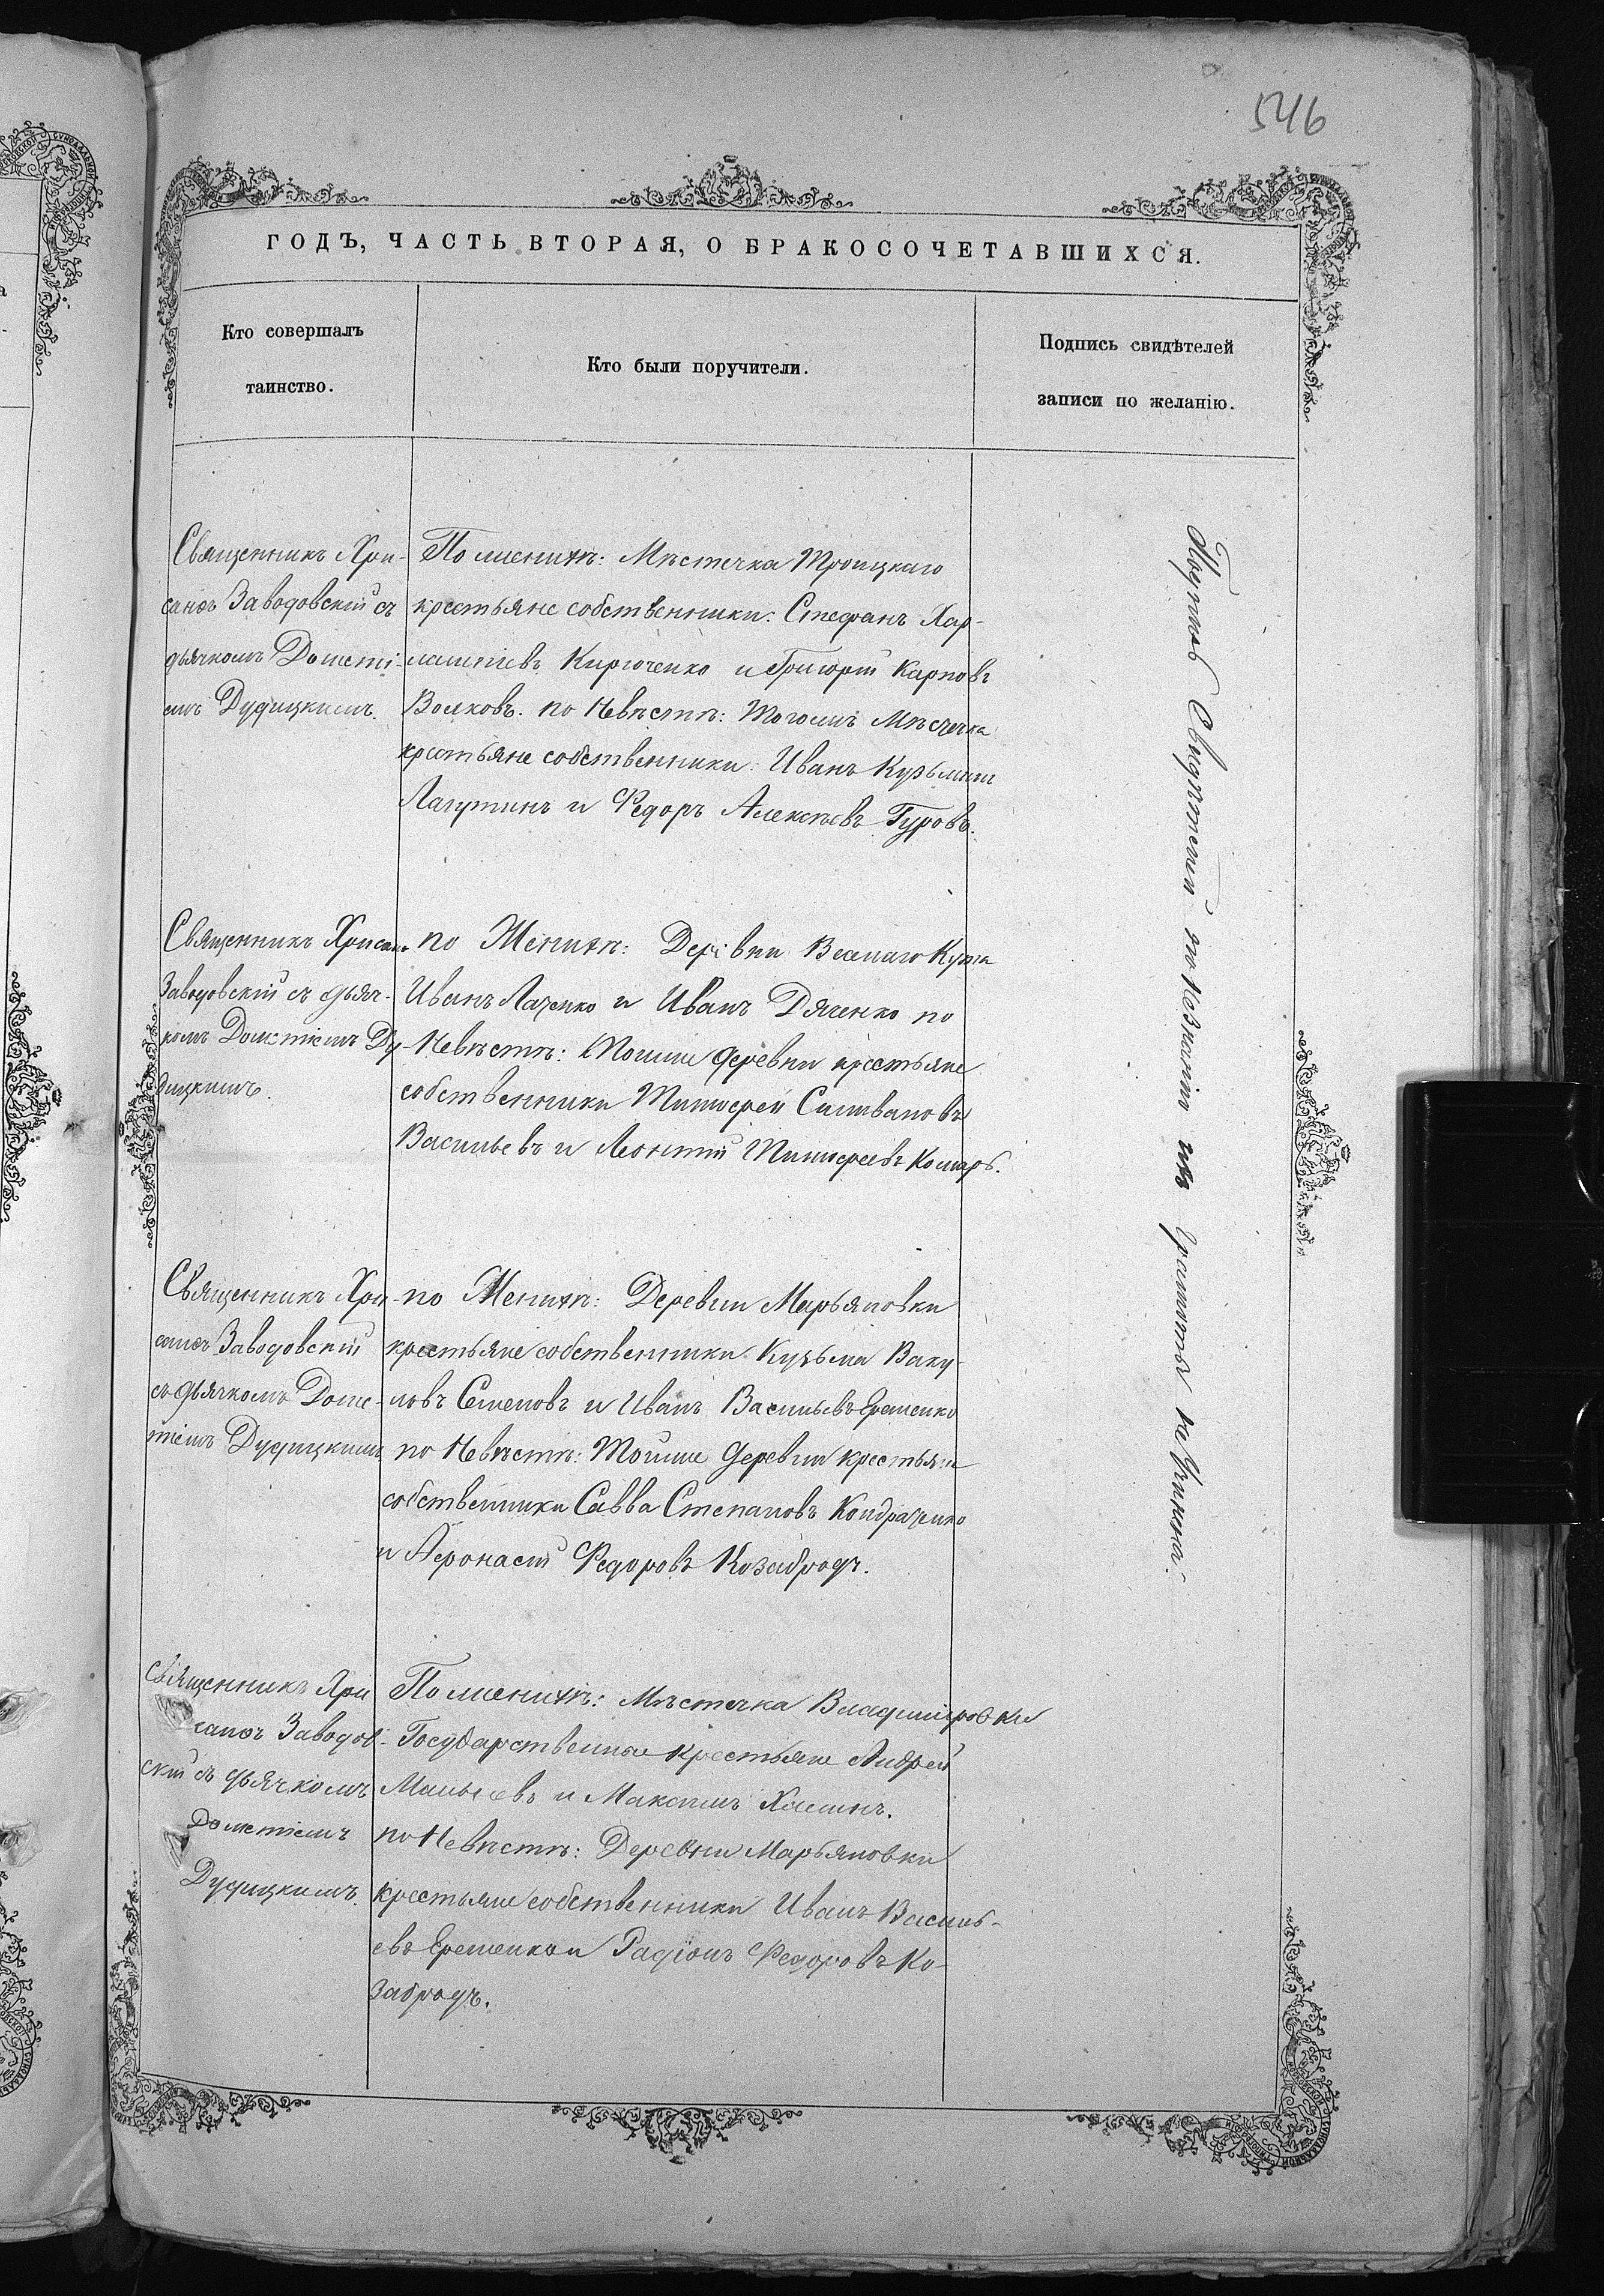 546
ГОДЪ, ЧАСТЬ ВТОРАЯ, О БРАКОСОЧЕТАВШИХСЯ.
Кто совершалъ
таинство.
Кто были поручители.
Подпись свидѣтелей
записи по желанію.
Священникъ Хри-
санѳъ Заводовскій съ
дьячкомъ Дометі-
емъ Дудицкимъ.
По женихѣ: Мѣстечка Троицкаго
крестьяне собственники: Стефанъ Хар-
лампіевъ Кирюченко и Григорій Карповъ
Волковъ. по Невѣстѣ: Тогожъ Мѣстечка
крестьяне собственники: Иванъ Кузьминъ
Лагутинъ и Федоръ Алексѣевъ Гуровъ.
Священникъ Хрисанѳъ
Заводовскій съ дьяч-
комъ Дометіемъ Ду-
дицкимъ.
по Женихѣ: Деревни Веселаго Кута
Иванъ Лаченко и Иванъ Дяченко по
Невѣстѣ: Тойже деревни крестьяне
собственники Тимофей Силивановъ
Васильевъ и Леонтій Тимофеевъ Комаръ.
Священникъ Хри-
санѳъ Заводовскій
съ дьячкомъ Доме-
тіемъ Дудицкимъ
по Женихѣ: Деревни Марьяновки
крестьяне собственники Кузьма Ваку-
ловъ Семеновъ и Иванъ Васильевъ Еременко
по Невѣстѣ: Тойже деревни крестьяне
собственники Савва Степановъ Кондраченко
и Афонасій Федоровъ Козабродъ.
Священникъ Хри
санѳъ Заводов-
скій съ дьячкомъ
Дометіемъ
Дудицкимъ.
По женихѣ: Мѣстечка Владиміровки
Государственные крестьяне Андрей
и Максимъ
по Невѣстѣ: Деревни Марьяновки
крестьяне собственники Иванъ Василь-
евъ Еременко и Радіонъ Федоровъ Ко-
забродъ.
Свидѣтелей по незнанію ими грамоты